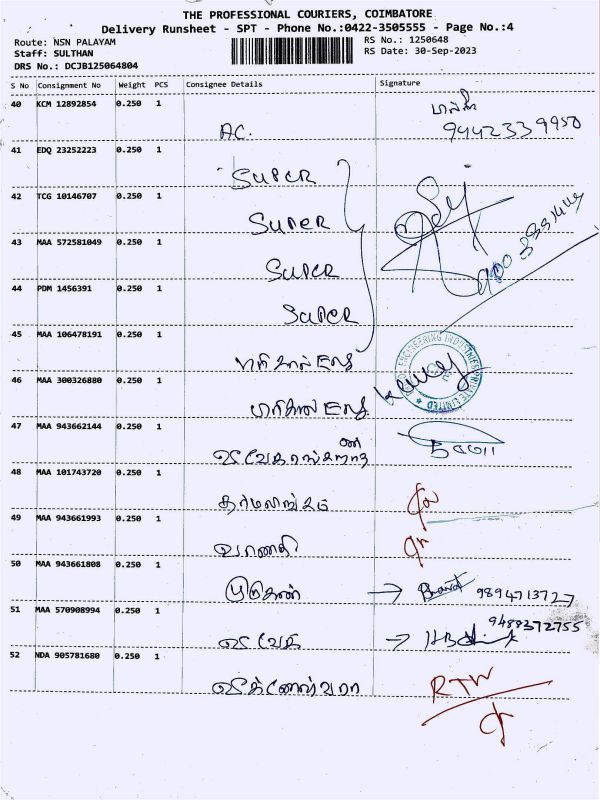 THE PROFESSIONAL COURIERS, COIMBATORE
Delivery Runsheet - SPT - Phone No.:0422-3505555 - Page No.:4
Route: NSN PALAYAM
RS No.: 1250648
Staff: SULTHAN
RS Date: 30-Sep-2023
DRS No.: DCJB125064804
S No Consignment No Weight PCS Consignee Details Signature
40 KCM 12892854 0.250 1
AC. 9442339950
41 EDQ 23252223 0.250 1
SUPER
42 TCG 10146707 0.250 1
SUPER
43 MAA 572581049 0.250 1
SUPER
44 PDM 1456391 0.250 1
SUPER
45 MAA 106478191 0.250 1
ENG
46 MAA 300326880 0.250 1
ENG
ENGINEERING INDUSTRIES PRIVATE LIMITED
47 MAA 943662144 0.250 1
48 MAA 101743720 0.250 1
தர்மலிங்கம்
49 MAA 943661993 0.250 1
வாணி
50 MAA 943661808 0.250 1
முருகன் → Bharat 9894713727
51 MAA 570908994 0.250 1
விவேக் → 9488372755
52 NDA 905781680 0.250 1
விக்னேஷ்வரா RTW